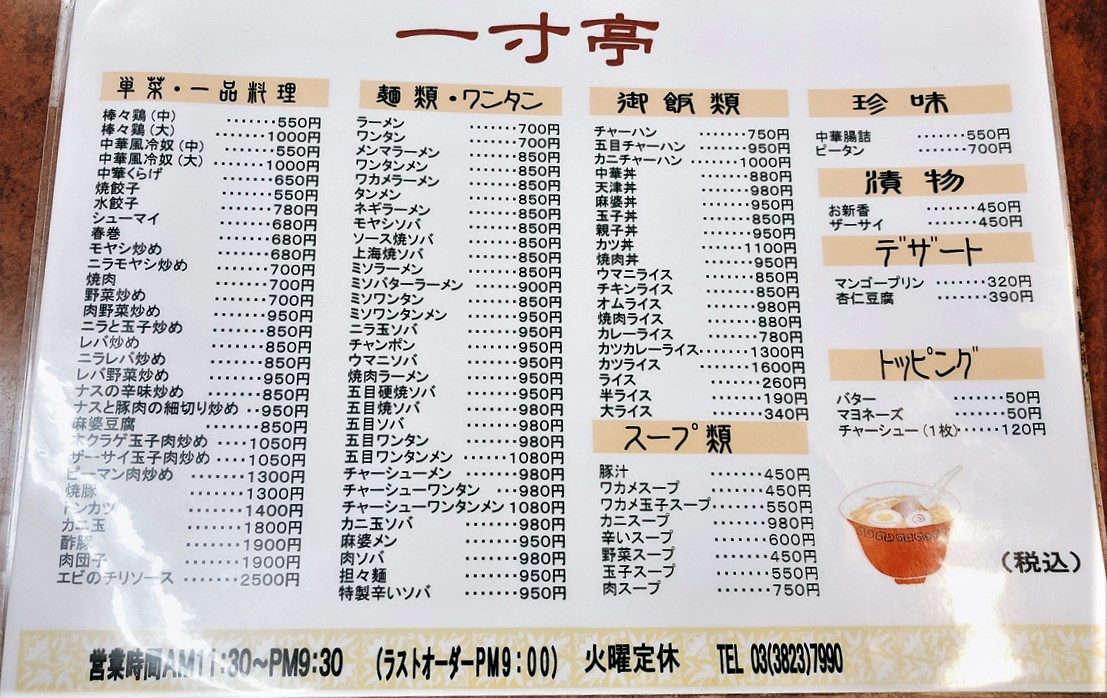 一寸亭
単菜・一品料理
棒々鶏(中)・・・・・・・・550円
棒々鶏(大)・・・・・・1000円
中華風冷奴(中)・・・・・・550円
中華風冷奴(大)・・・・・・1000円
中華くらげ・・・・・・・650円
焼餃子・・・・・・・550円
水餃子・・・・・・・780円
シューマイ・・・・・・・680円
春巻・・・・・・・680円
モヤシ炒め・・・・・・・680円
ニラモヤシ炒め・・・・・・・700円
焼肉・・・・・・・700円
野菜炒め・・・・・・・700円
肉野菜炒め・・・・・・・950円
ニラと玉子炒め・・・・・・・850円
レバ炒め・・・・・・・850円
ニラレバ炒め・・・・・・・850円
レバ野菜炒め・・・・・・・950円
ナスの辛味炒め・・・・・・・850円
ナスと豚肉の細切り炒め・・950円
麻婆豆腐・・・・・・・850円
木クラゲ玉子肉炒め・・・・1050円
ザーサイ玉子肉炒め・・・・1050円
ピーマン肉炒め・・・・・・1300円
焼豚・・・・・・・1300円
トンカツ・・・・・・・1400円
カニ玉・・・・・・・1800円
酢豚・・・・・・・1900円
肉団子・・・・・・・1900円
エビのチリソース・・・・・・・2500円
麺類・ワンタン
ラーメン・・・・・・・700円
ワンタン・・・・・・・700円
メンマラーメン・・・・・・・850円
ワンタンメン・・・・・・・850円
ワカメラーメン・・・・・・・850円
タンメン・・・・・・・850円
ネギラーメン・・・・・・・850円
モヤシソバ・・・・・・・850円
ソース焼ソバ・・・・・・・850円
上海焼ソバ・・・・・・・850円
ミソラーメン・・・・・・・850円
ミソバターラーメン・・・・・・・900円
ミソワンタン・・・・・・・850円
ミソワンタンメン・・・・・・・850円
ニラ玉ソバ・・・・・・・950円
チャンポン・・・・・・・950円
ウマニソバ・・・・・・・950円
焼肉ラーメン・・・・・・・950円
五目硬焼ソバ・・・・・・・950円
五目焼ソバ・・・・・・・980円
五目ソバ・・・・・・・980円
五目ワンタン・・・・・・・980円
五目ワンタンメン・・・・・・1080円
チャーシューメン・・・・・・・980円
チャーシューワンタン・・・980円
チャーシューワンタンメン 1080円
カニ玉ソバ・・・・・・・980円
麻婆メン・・・・・・・950円
肉ソバ・・・・・・・980円
担々麺・・・・・・・950円
特製辛いソバ・・・・・・・950円
御飯類
チャーハン・・・・・・・750円
五目チャーハン・・・・・・・950円
カニチャーハン・・・・・・・1000円
中華丼・・・・・・・880円
天津丼・・・・・・・980円
麻婆丼・・・・・・・950円
玉子丼・・・・・・・850円
親子丼・・・・・・・950円
カツ丼・・・・・・・1100円
焼肉丼・・・・・・・950円
ウマニライス・・・・・・・850円
チキンライス・・・・・・・850円
オムライス・・・・・・・980円
焼肉ライス・・・・・・・880円
カレーライス・・・・・・・780円
カツカレーライス・・・・・・・1300円
カツライス・・・・・・・1600円
ライス・・・・・・・260円
半ライス・・・・・・・190円
大ライス・・・・・・・340円
スープ類
豚汁・・・・・・・450円
ワカメスープ・・・・・・・450円
ワカメ玉子スープ・・・・・・550円
カニスープ・・・・・・・980円
辛いスープ・・・・・・・600円
野菜スープ・・・・・・・450円
玉子スープ・・・・・・・550円
肉スープ・・・・・・・750円
珍味
中華腸詰・・・・・・・550円
ピータン・・・・・・・700円
漬物
お新香・・・・・・・450円
ザーサイ・・・・・・・450円
デザート
マンゴープリン・・・・・・・320円
杏仁豆腐・・・・・・・390円
トッピング
バター・・・・・・・50円
マヨネーズ・・・・・・・50円
チャーシュー(1枚)・・・・・・120円
(税込)
営業時間AM11:30～PM9:30 (ラストオーダーPM9:00) 火曜定休 TEL 03(3823)7990